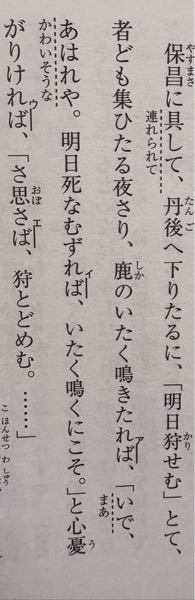 やすまさ たんご かり
保昌に具して、丹後へ下りたるに、「明日狩せむ」とて、
連れられて
しか ア
者ども集ひたる夜さり、鹿のいたく鳴きたれば、「いで、
まあ
イ う
あはれや。明日死なむずれば、いたく鳴くにこそ。」と心憂
かわいそうな
ウ おぼ エ
がりければ、「さ思さば、狩とどめむ。……」
こ ほんせつ わ しゅう